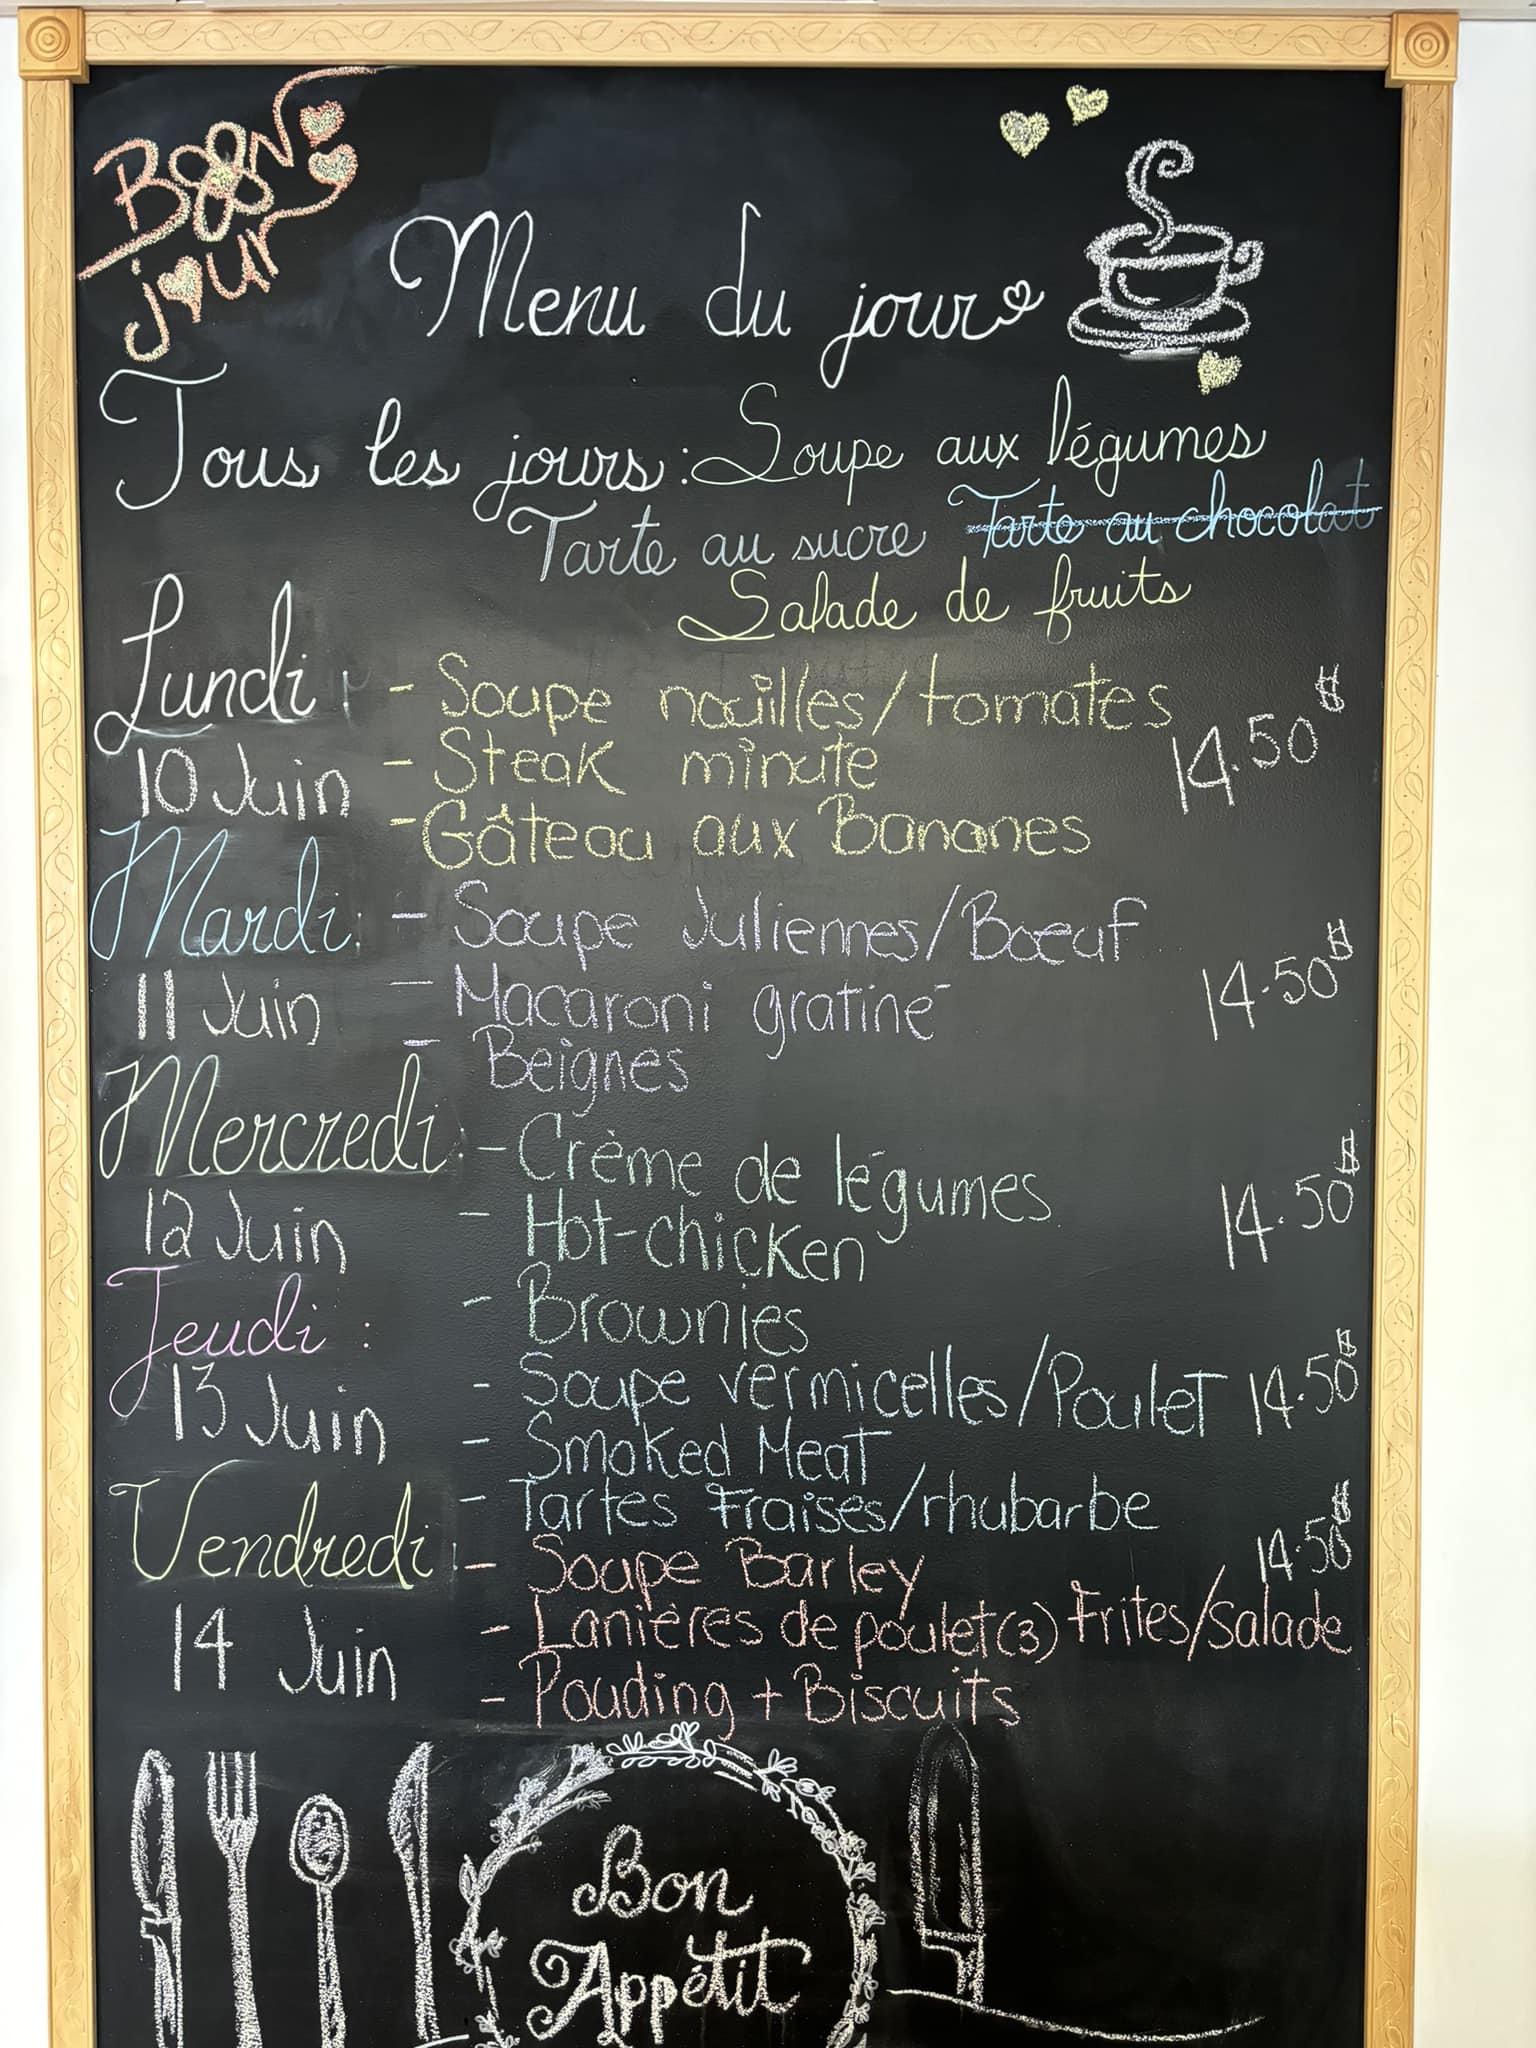 Bonjour
Menu du jour
Tous les jours: Soupe aux légumes
Tarte au sucre Tarte au chocolat
Salade de fruits
Lundi: - Soupe nouilles/tomates
10 Juin - Steak minute 14.50$
- Gâteau aux Bananes
Mardi: - Soupe Juliennes/Boeuf
11 Juin - Macaroni gratiné 14.50$
- Beignes
Mercredi: - Crème de légumes
12 Juin - Hot-chicken 14.50$
- Brownies
Jeudi: - Soupe vermicelles/Poulet 14.50$
13 Juin - Smoked Meat
- Tartes Fraises/rhubarbe
Vendredi: - Soupe Barley 14.50$
14 Juin - Lanières de poulet(3) Frites/Salade
- Pouding + Biscuits
Bon
Appétit